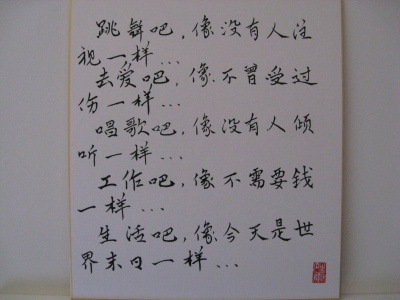 跳舞吧,像没有人注
视一样...
去爱吧,像不曾受过
伤一样...
唱歌吧,像没有人倾
听一样...
工作吧,像不需要钱
一样...
生活吧,像今天是世
界末日一样...